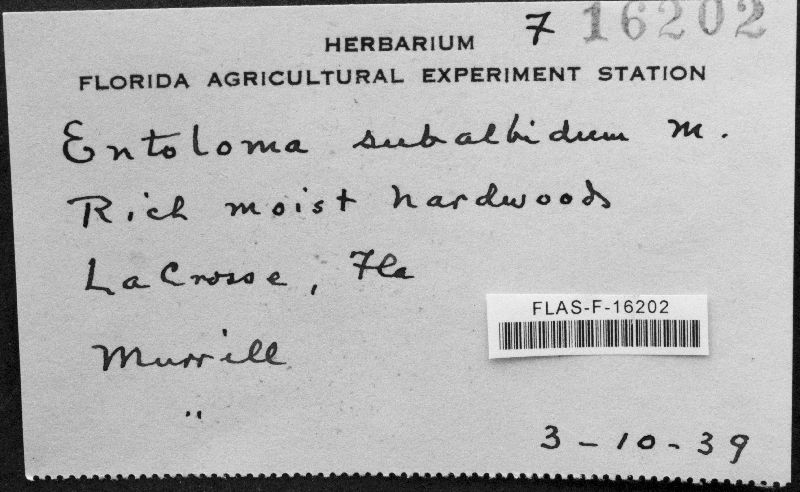 F 16202
HERBARIUM
FLORIDA AGRICULTURAL EXPERIMENT STATION
Entoloma subalbidum M.
Rich moist hardwoods
LaCrosse, Fla
FLAS-F-16202
Murrill
"
3-10-39